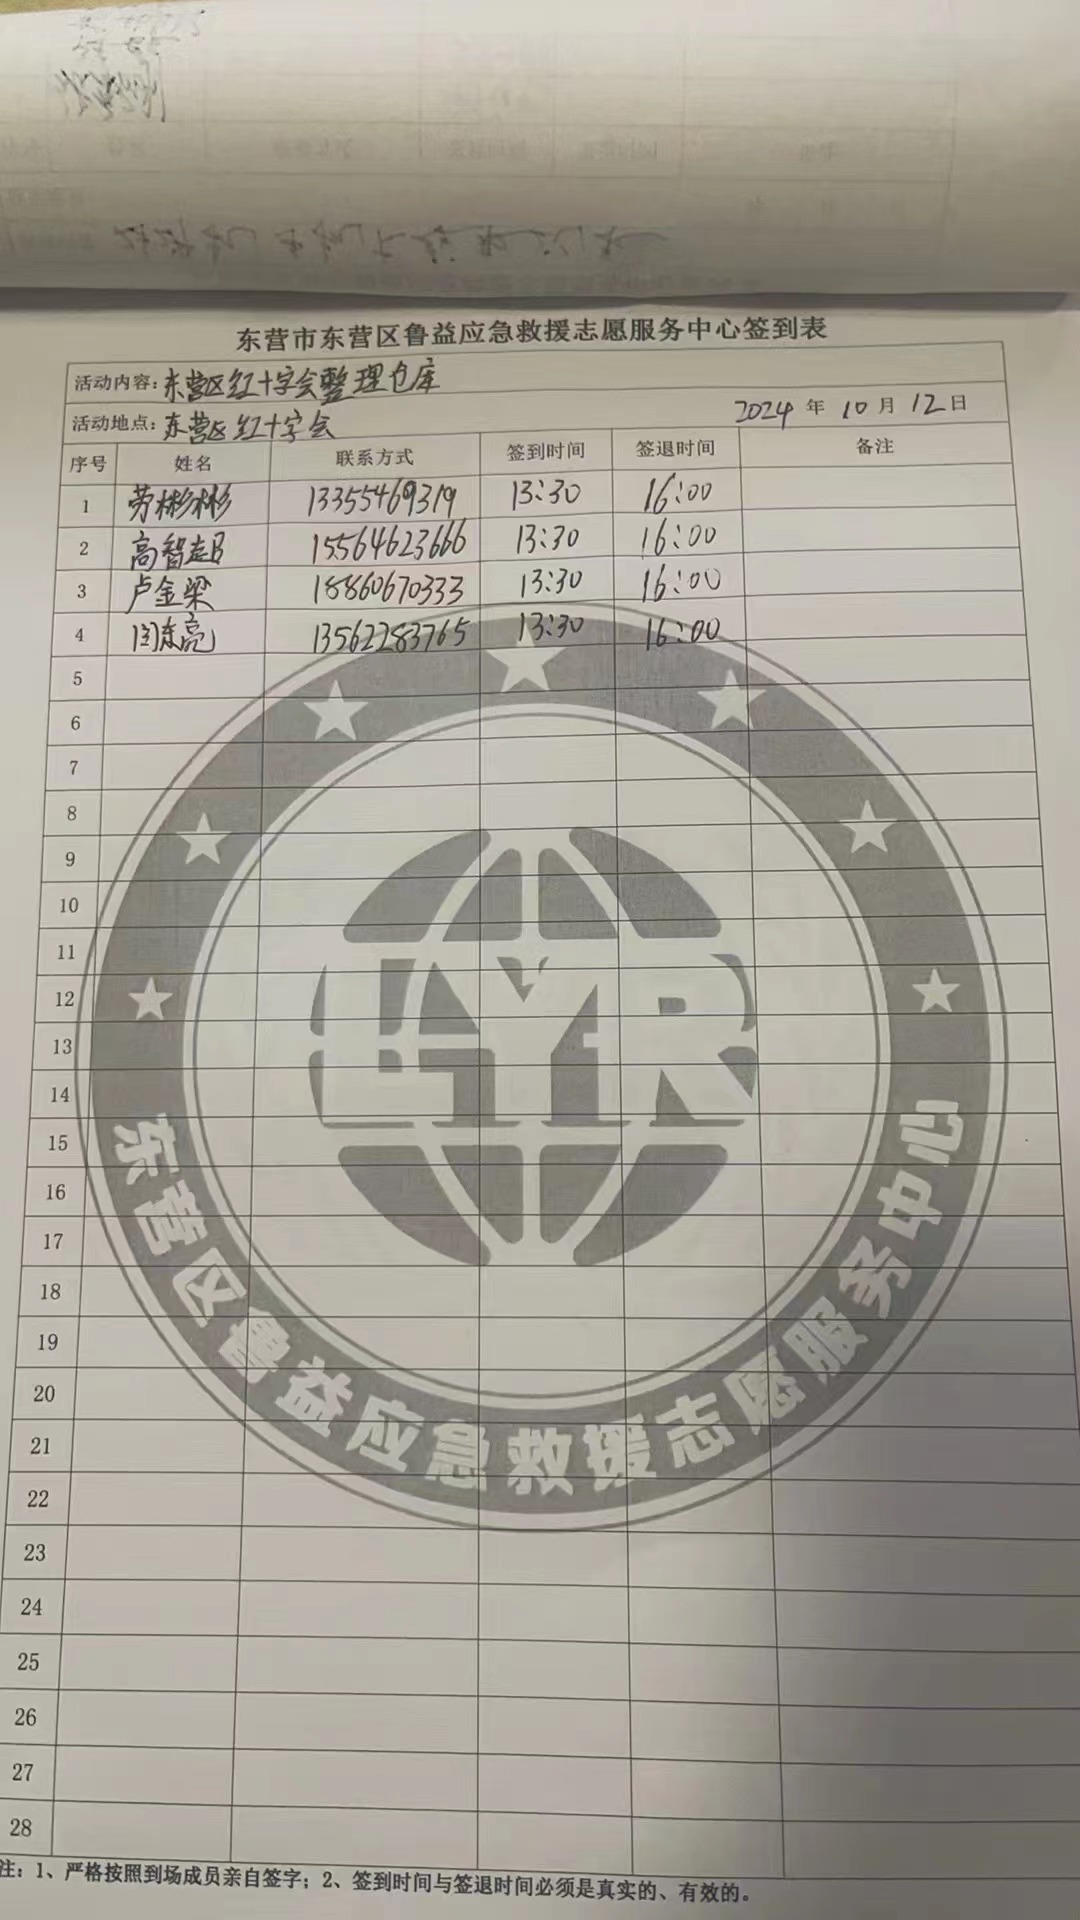 东营市东营区鲁益应急救援志愿服务中心签到表
活动内容：东营区红十字会整理仓库
活动地点：东营区红十字会 2024 年 10 月 12 日
序号 姓名 联系方式 签到时间 签退时间 备注
1 劳彬彬 13355469319 13:30 16:00
2 高智超 15564623666 13:30 16:00
3 卢金梁 18860670333 13:30 16:00
4 闫东亮 13562283765 13:30 16:00
5
6
7
8
9
10
11
12
13
14
15
16
17
18
19
20
21
22
23
24
25
26
27
28
LYR
东营区鲁益应急救援志愿服务中心
注：1、严格按照到场成员亲自签字；2、签到时间与签退时间必须是真实的、有效的。